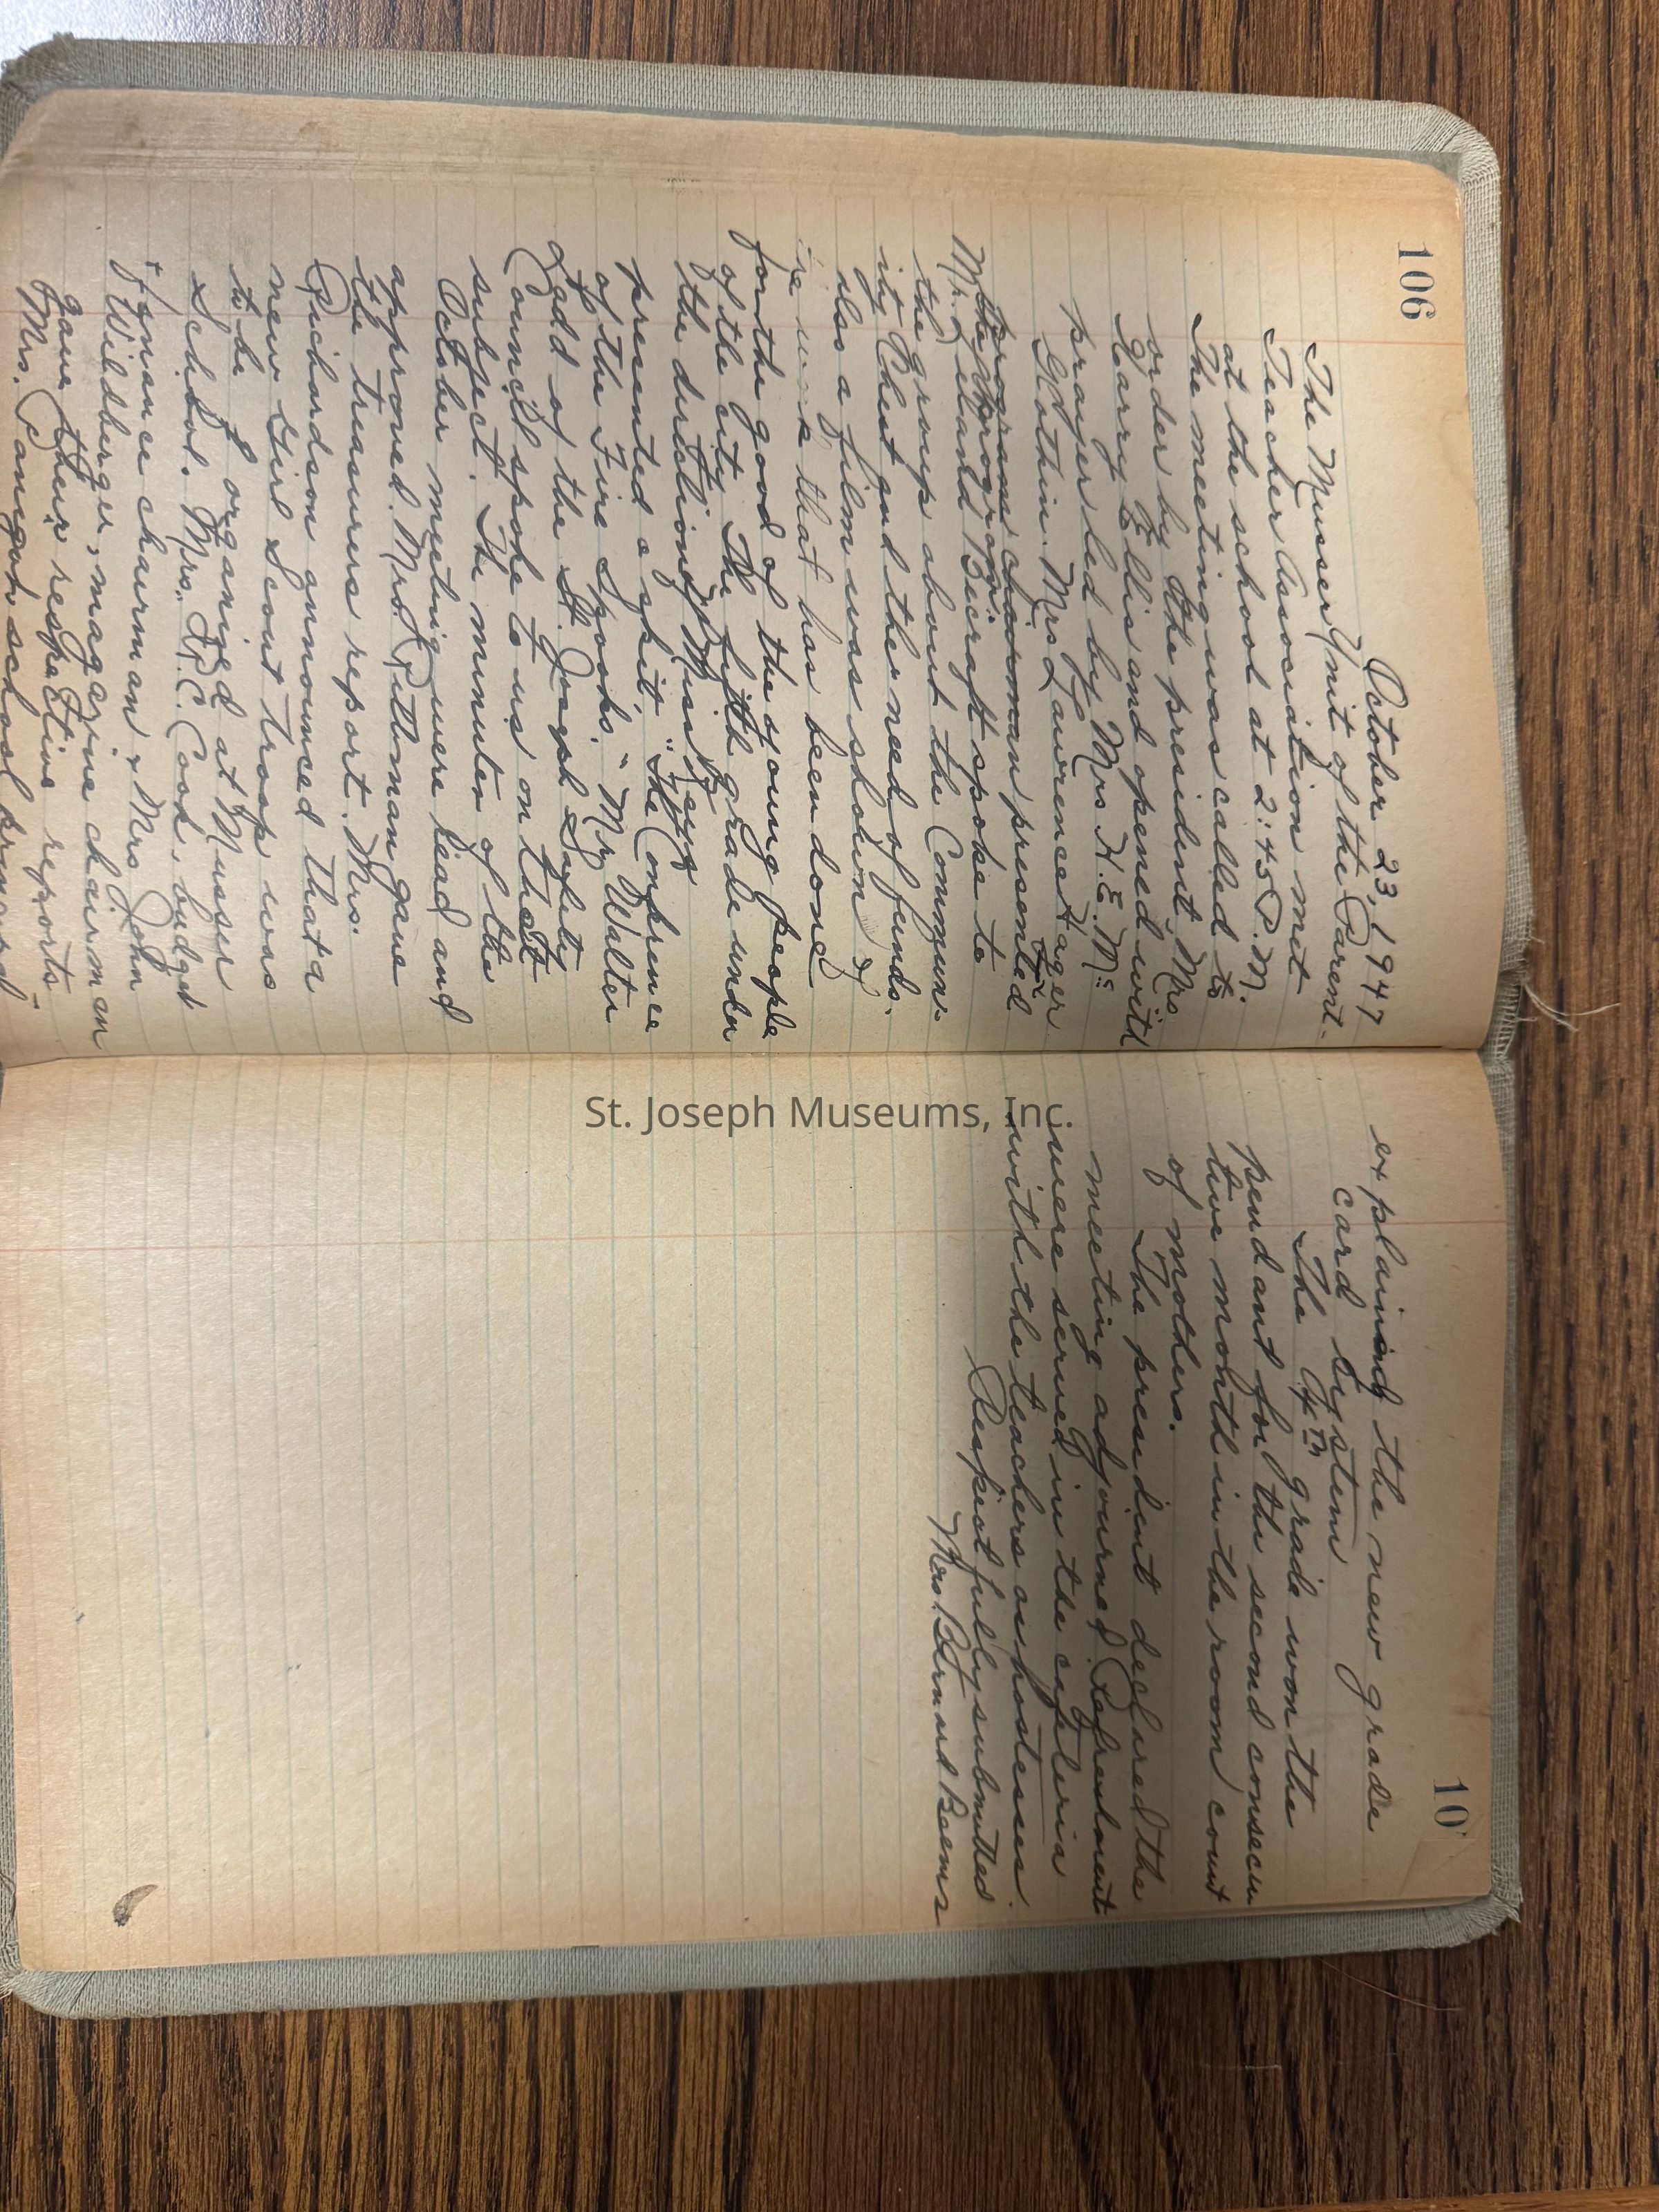 106
October 23, 1947
The Musser Unit of the Parent-
Teacher Association met
at the school at 2:45 P.M.
The meeting was called to
order by the president, Mrs
Harry Ellis and opened with
prayer led by Mrs H.E. Mc
Glothin. Mrs Lawrence Hager
program chairman presented the
the program.
Mr. Leland Becraft spoke to
the group about the Commun-
ity Chest and the need of funds.
also a film was shown of
the work that has been done
for the good of the young people
of the city. The fifth grade under
the direction of Miss
presented a skit, "The Conference
of the Fire Spooks." Mr Walter
Ladd of the St. Joseph Safety
Council spoke to us on that
subject. The minutes of the
October meeting were read and
approved. Mrs. Pittman gave
the treasurers report. Mrs.
Richardson announced that a
new Girl Scout troop was
to be organized at Musser
School. Mrs. R.C. Cook, budget
+ finance chairman + Mrs John
Wildberger, magazine chairman
gave their respective reports
Mrs. school
10
explaining the new grade
card system
The 4th grade won the
pendant for the second consecu
tive month in the room count
of mothers.
The president declared the
meeting adjourned. Refreshment
were served in the cafeteria
with the teachers as hostesses.
Respectfully submitted
Mrs. Bernard Beems
St. Joseph Museums, Inc.